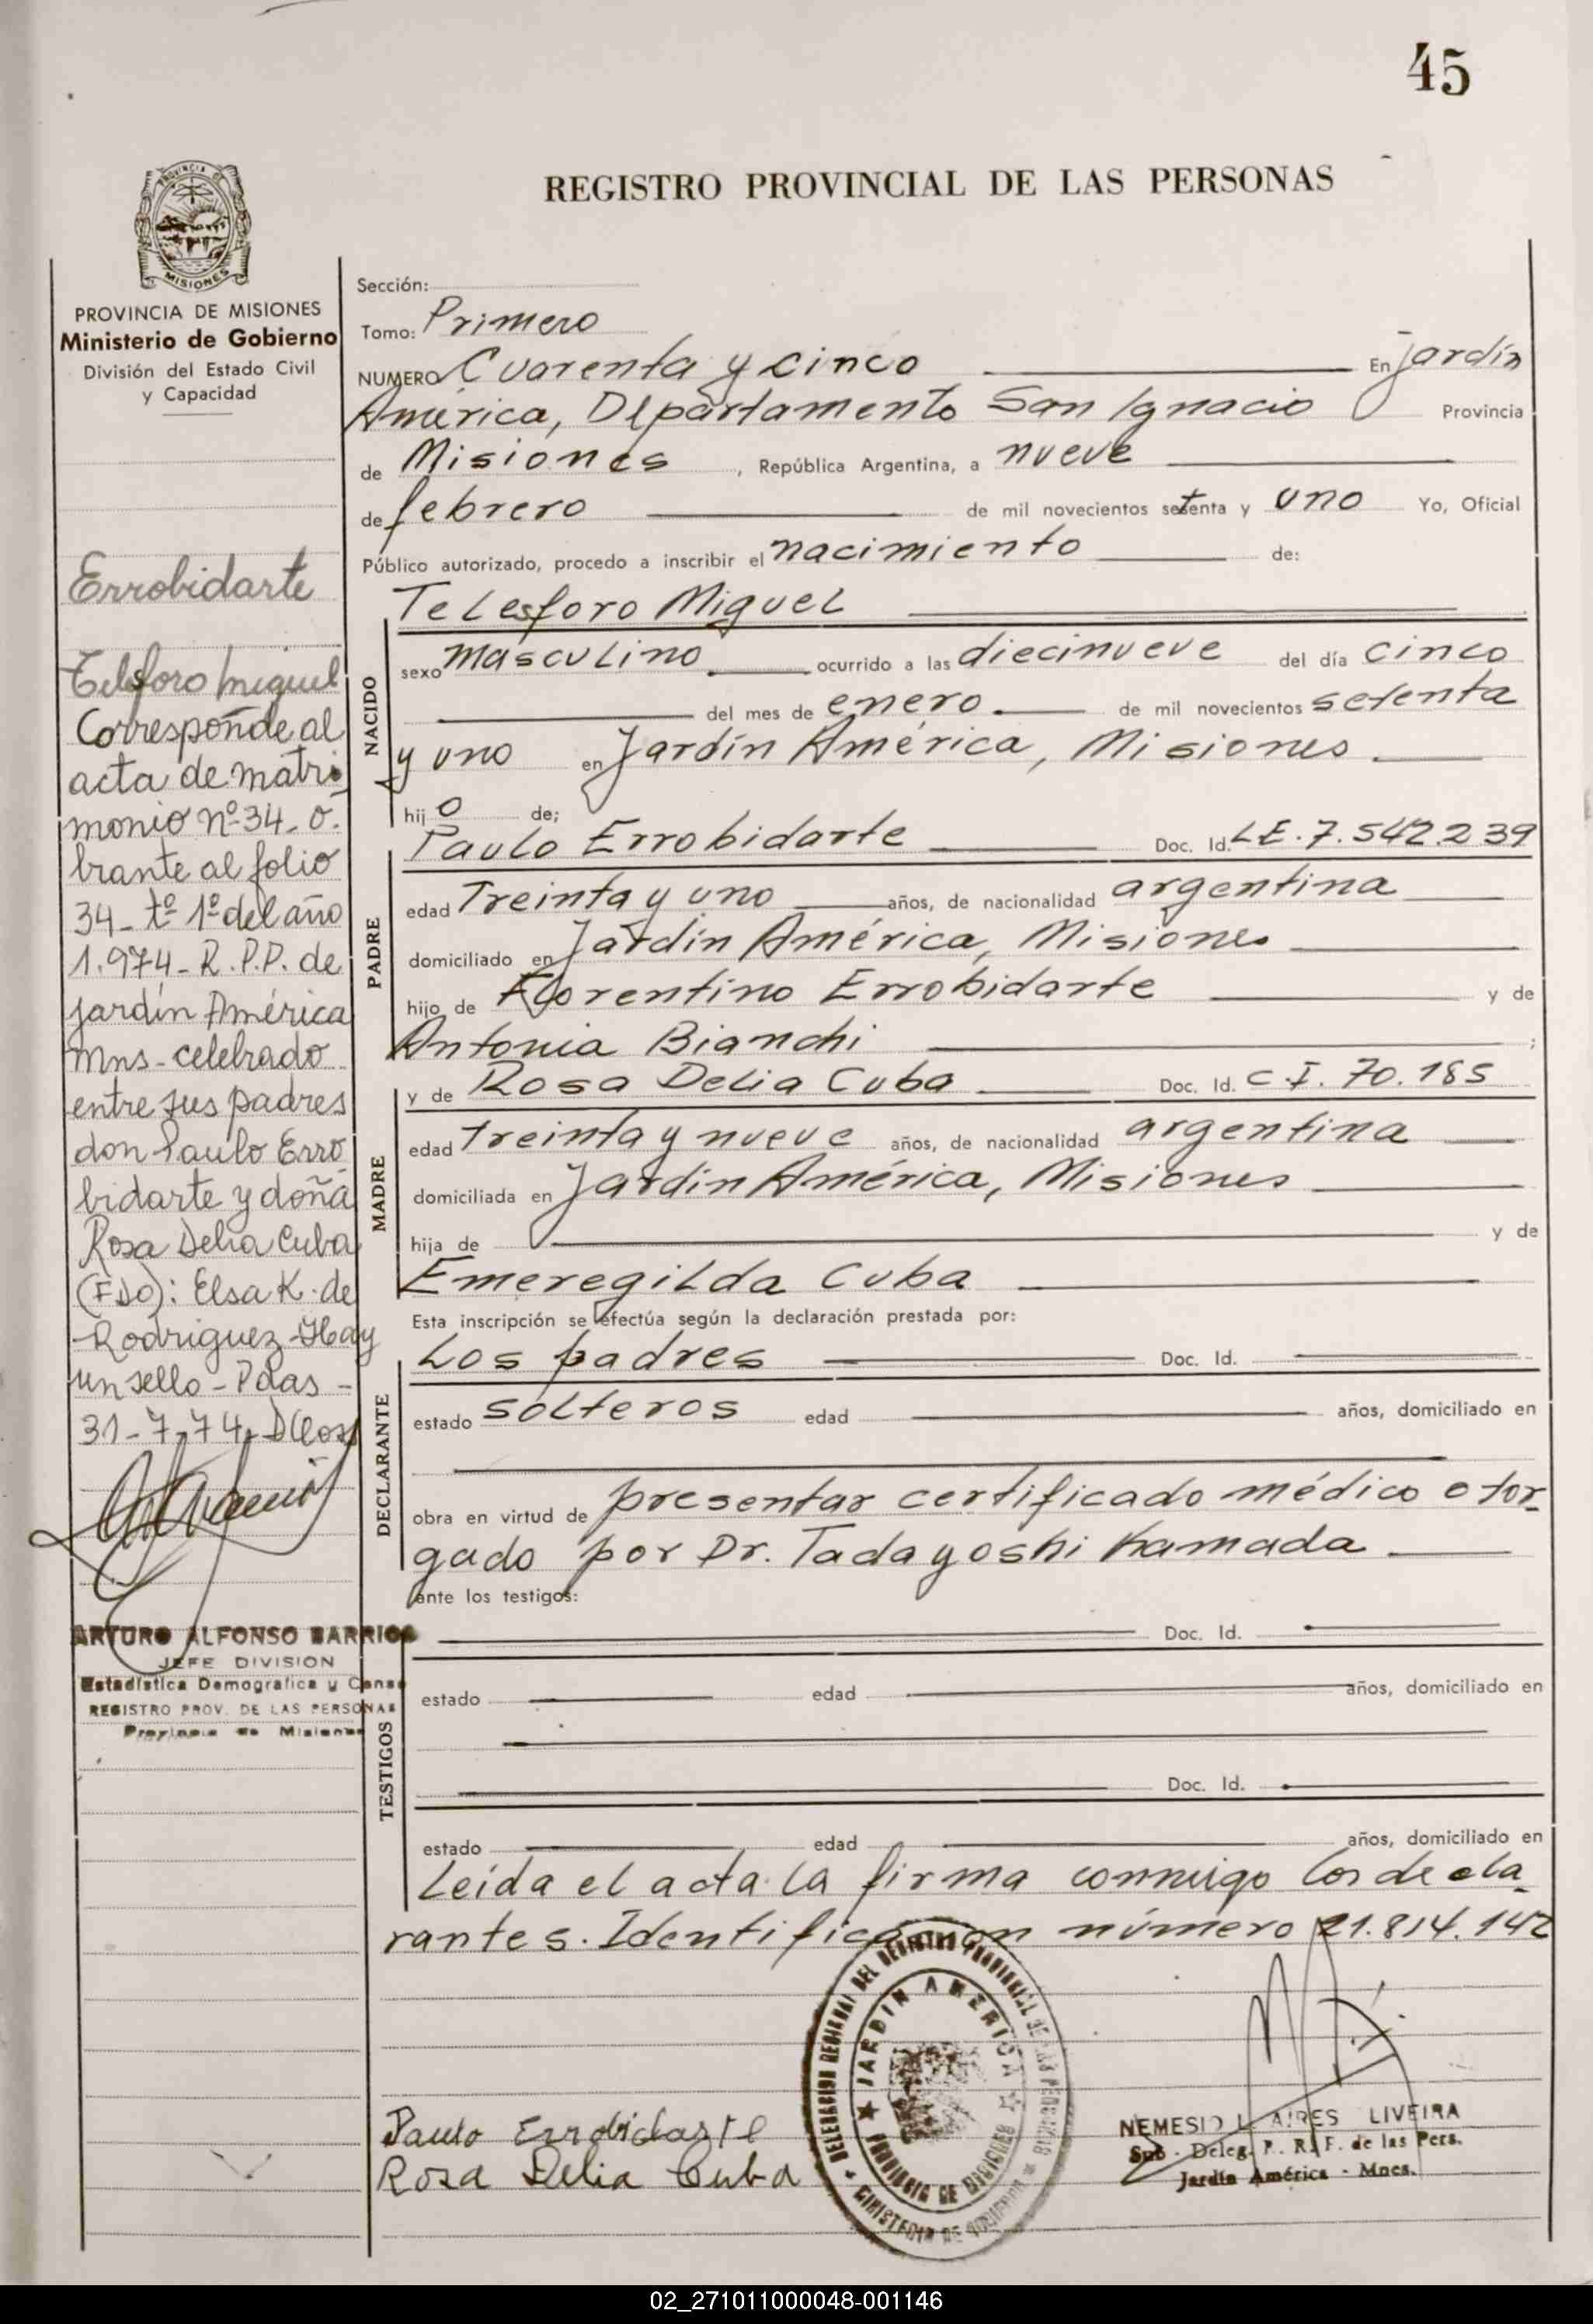 45
REGISTRO PROVINCIAL DE LAS PERSONAS
PROVINCIA DE
MISIONES
PROVINCIA DE MISIONES
Ministerio de Gobierno
División del Estado Civil
y Capacidad
Errobidarte
Telesforo Miguel
Corresponde al
acta de matri
monio nº 34. o.
brante al folio
34 - tº 1º del año
1.974 - R.P.P. de
Jardín América
Mns - celebrado
entre sus padres
don Paulo Erro
bidarte y doña
Rosa Delia Cuba
(FDO): Elsa K. de
Rodriguez - Hay
un sello - Pdas -
31-7-74.
ARTURO ALFONSO BARRIOS
JEFE DIVISION
Estadística Demografica y Censo
REGISTRO PROV. DE LAS PERSONAS
Provincia de Misiones
Sección:
Tomo: Primero
NUMERO Cuarenta y cinco En Jardín
América, Departamento San Ignacio Provincia
de Misiones , República Argentina, a nueve
de febrero de mil novecientos setenta y uno Yo, Oficial
Público autorizado, procedo a inscribir el nacimiento de:
Telesforo Miguel
NACIDO
sexo masculino ocurrido a las diecinueve del día cinco
del mes de enero de mil novecientos setenta
y uno en Jardín América, Misiones
hijo de;
PADRE
Paulo Errobidarte Doc. Id. LE. 7.542.239
edad Treinta y uno años, de nacionalidad argentina
domiciliado en Jardín América, Misiones
hijo de Florentino Errobidarte y de
Antonia Bianchi ;
MADRE
y de Rosa Delia Cuba Doc. Id. C.I. 70.185
edad treinta y nueve años, de nacionalidad argentina
domiciliada en Jardín América, Misiones
hija de y de
Emeregilda Cuba
Esta inscripción se efectúa según la declaración prestada por:
DECLARANTE
Los padres Doc. Id.
estado solteros edad años, domiciliado en
obra en virtud de presentar certificado médico otor-
gado por Dr. Tadayoshi Kamada
ante los testigos:
TESTIGOS
Doc. Id.
estado edad años, domiciliado en
Doc. Id.
estado edad años, domiciliado en
Leída el acta la firma conmigo los decla-
rantes. Identificación número 21.814.142
DELEGACION REGIONAL DEL REGISTRO PROVINCIAL DE LAS PERSONAS
JARDIN AMERICA
PROVINCIA DE MISIONES
MINISTERIO DE GOBIERNO
Paulo Errobidarte
Rosa Delia Cuba
NEMESIO L. AIRES LIVEIRA
Sub - Deleg. P. R. F. de las Pers.
Jardín América - Mnes.
02_271011000048-001146